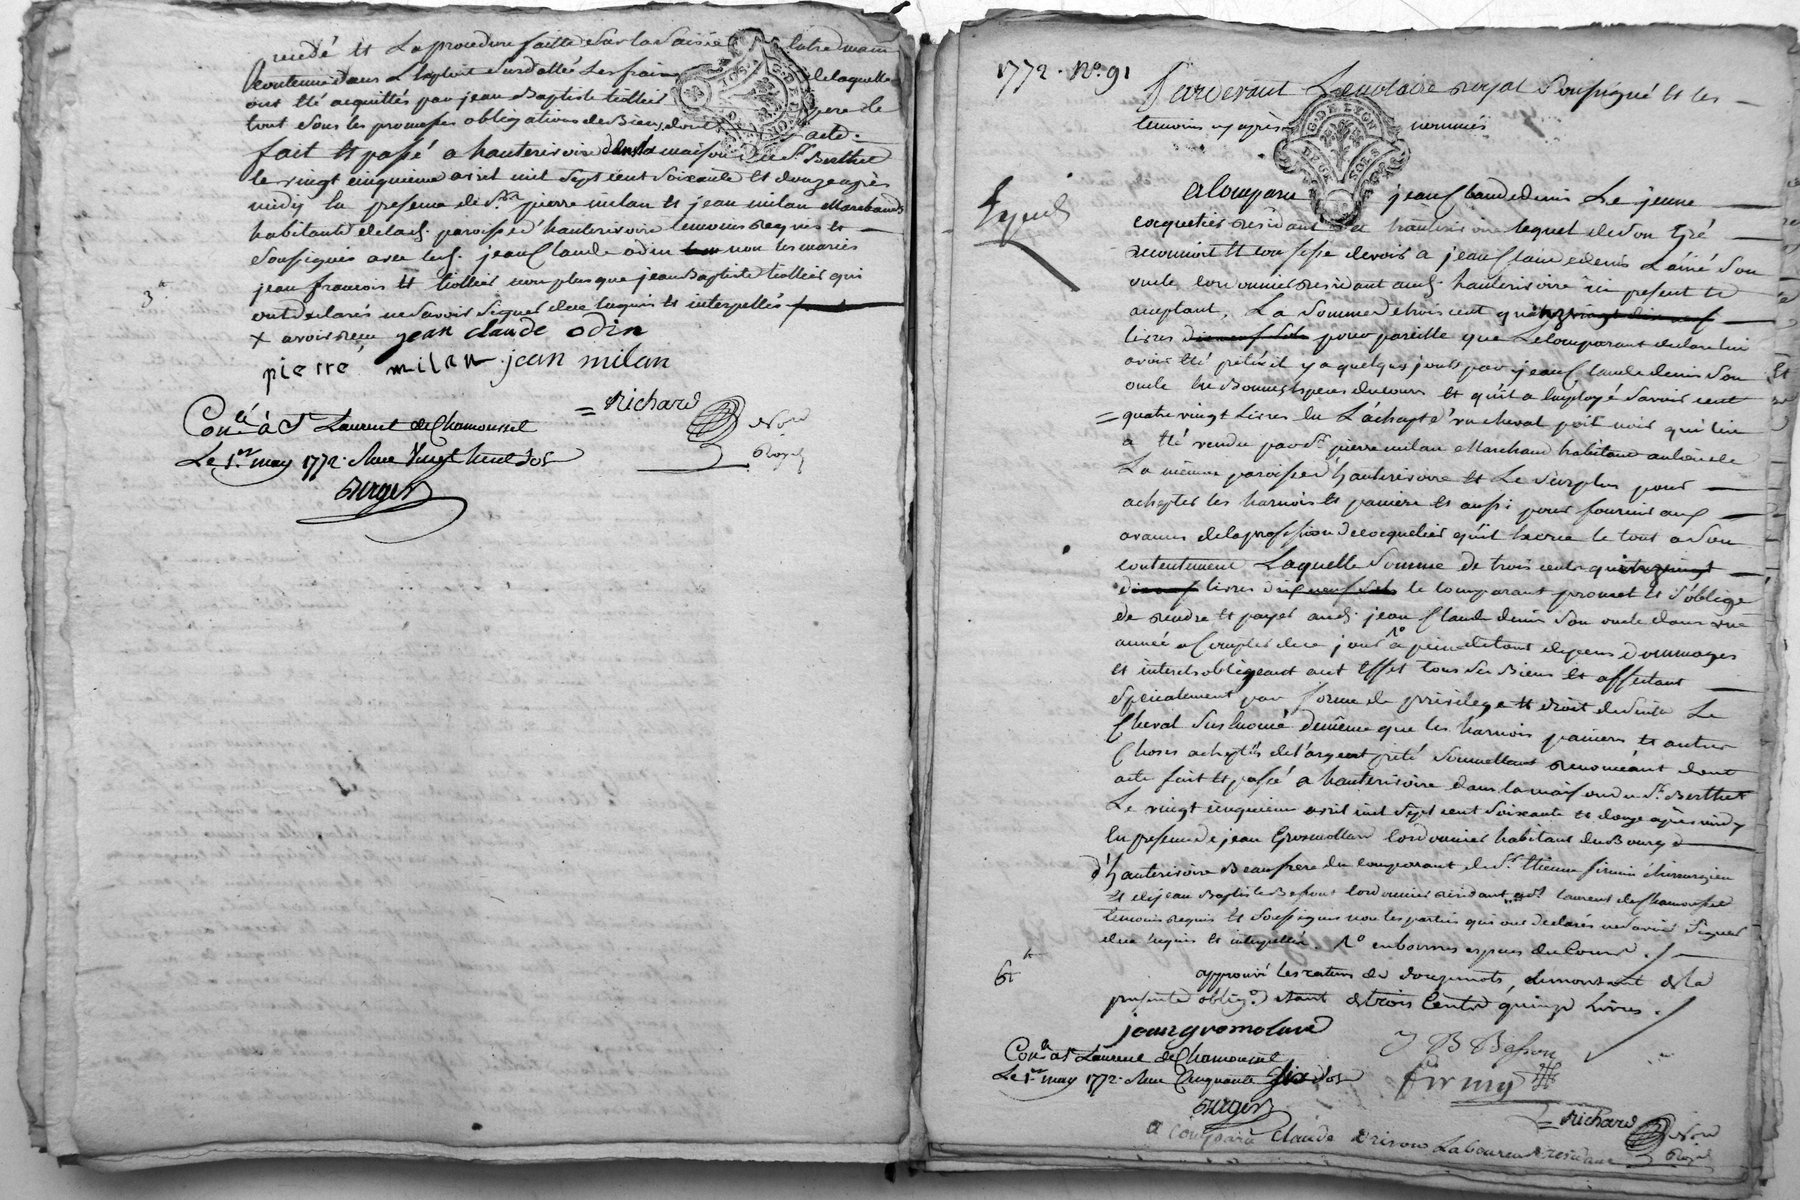 cedé et La procedure faitte Sur la Saisie
Contenue dans L'exploit Surdatté Les frais de laquelle
ont été acquittés par jean Baptiste tiollier pere le
tout Sous les promesses obligations de Biens, dont acte.
fait et passé a hauterivoire dans la maison du Sr. Berthet
le vingt cinquieme avril mil Sept cent Soixante et douze après
midy En presence de Sr. pierre milan et jean milan Marchands
habitants de lad. paroisse d'hauterivoire temoins requis et
Soussignés avec led. jean Claude odin non les mariés
jean francois et tiollier non plus que jean Baptiste tiollier qui
ont declarés ne Savoir Signer de ce Enquis et interpellés
x avoir reçu jean claude odin
pierre milan jean milan
= Richard
Not.re
Royal
Conlé à St Laurent de Chamousset
Le 1.er may 1772. Reçu Vingt huit Sols
3 tt
1772. No. 91
Pardevant Le notaire royal Soussigné et les
temoins cy après nommés
G. DE LYON
DEUX SOLS
a Comparu jean Claude denis Le jeune
cocquetier residant a hauterivoire lequel de Son Gré
reconnoit et confesse devoir a jean Claude denis L'ainé Son
oncle cordonnier residant aud. hauterivoire ici present et
acceptant, La Somme de trois cent quinze
livres pour pareille que Le Comparant declare lui
avoir été prêtée il y a quelques jours par jean Claude denis Son
oncle En Bonnes Especes du cours et qu'il a Employé Savoir cent
= quatre vingt Livres En L'achapt d'un cheval poil noir qui lui
a été vendu par Sr. pierre milan Marchand habitant au lieu de
La même paroisse d'hauterivoire et Le Surplus pour
achepter les harnois et paniers et aussi pour fournir aux
avances de la profession de cocquetier qu'il Exerce le tout a Son
contentement Laquelle Somme de trois cent quinze
livres le comparant promet et s'oblige
de rendre et payer aud. jean Claude denis Son oncle dans une
année a Compter de ce jour 1o a peine de tous depens dommages
et interets obligeant a cet Effet tous Ses Biens et affectant
Specialement par forme de privilege et droit de Suite Le
Cheval Sus Enoncé de même que les harnois paniers et autres
Choses acheptés de l'argent prêté Soumettant renonceant dont
acte fait et passé a hauterivoire dans la maison du Sr. Berthet
Le vingt cinquieme avril mil Sept cent Soixante et douze après midy
En presence de jean Grosmollard Cordonnier habitant du Bourg d
d'hauterivoire Beaufrere du comparant de Sr. Etienne firmin chirurgien
et de jean Baptiste Besson Cordonnier residant a St. Laurent de Chamousset
temoins requis et Soussignés non les parties qui ont declarés ne Savoir Signer
de ce Enquis et interpellés. 1o en bonnes especes du Cours.
6 tt
approuvé les ratures de douze mots, le montant de la
presente oblig.on etant de trois Cents quinze Livres.
jean gromolard
J B Besson
Conlé à St Laurent de Chamousset
Le 1.er may 1772. Reçu Cinquante Six Sols
firmin
= Richard
Not.re
Royal
a comparu Claude Laboureur residant